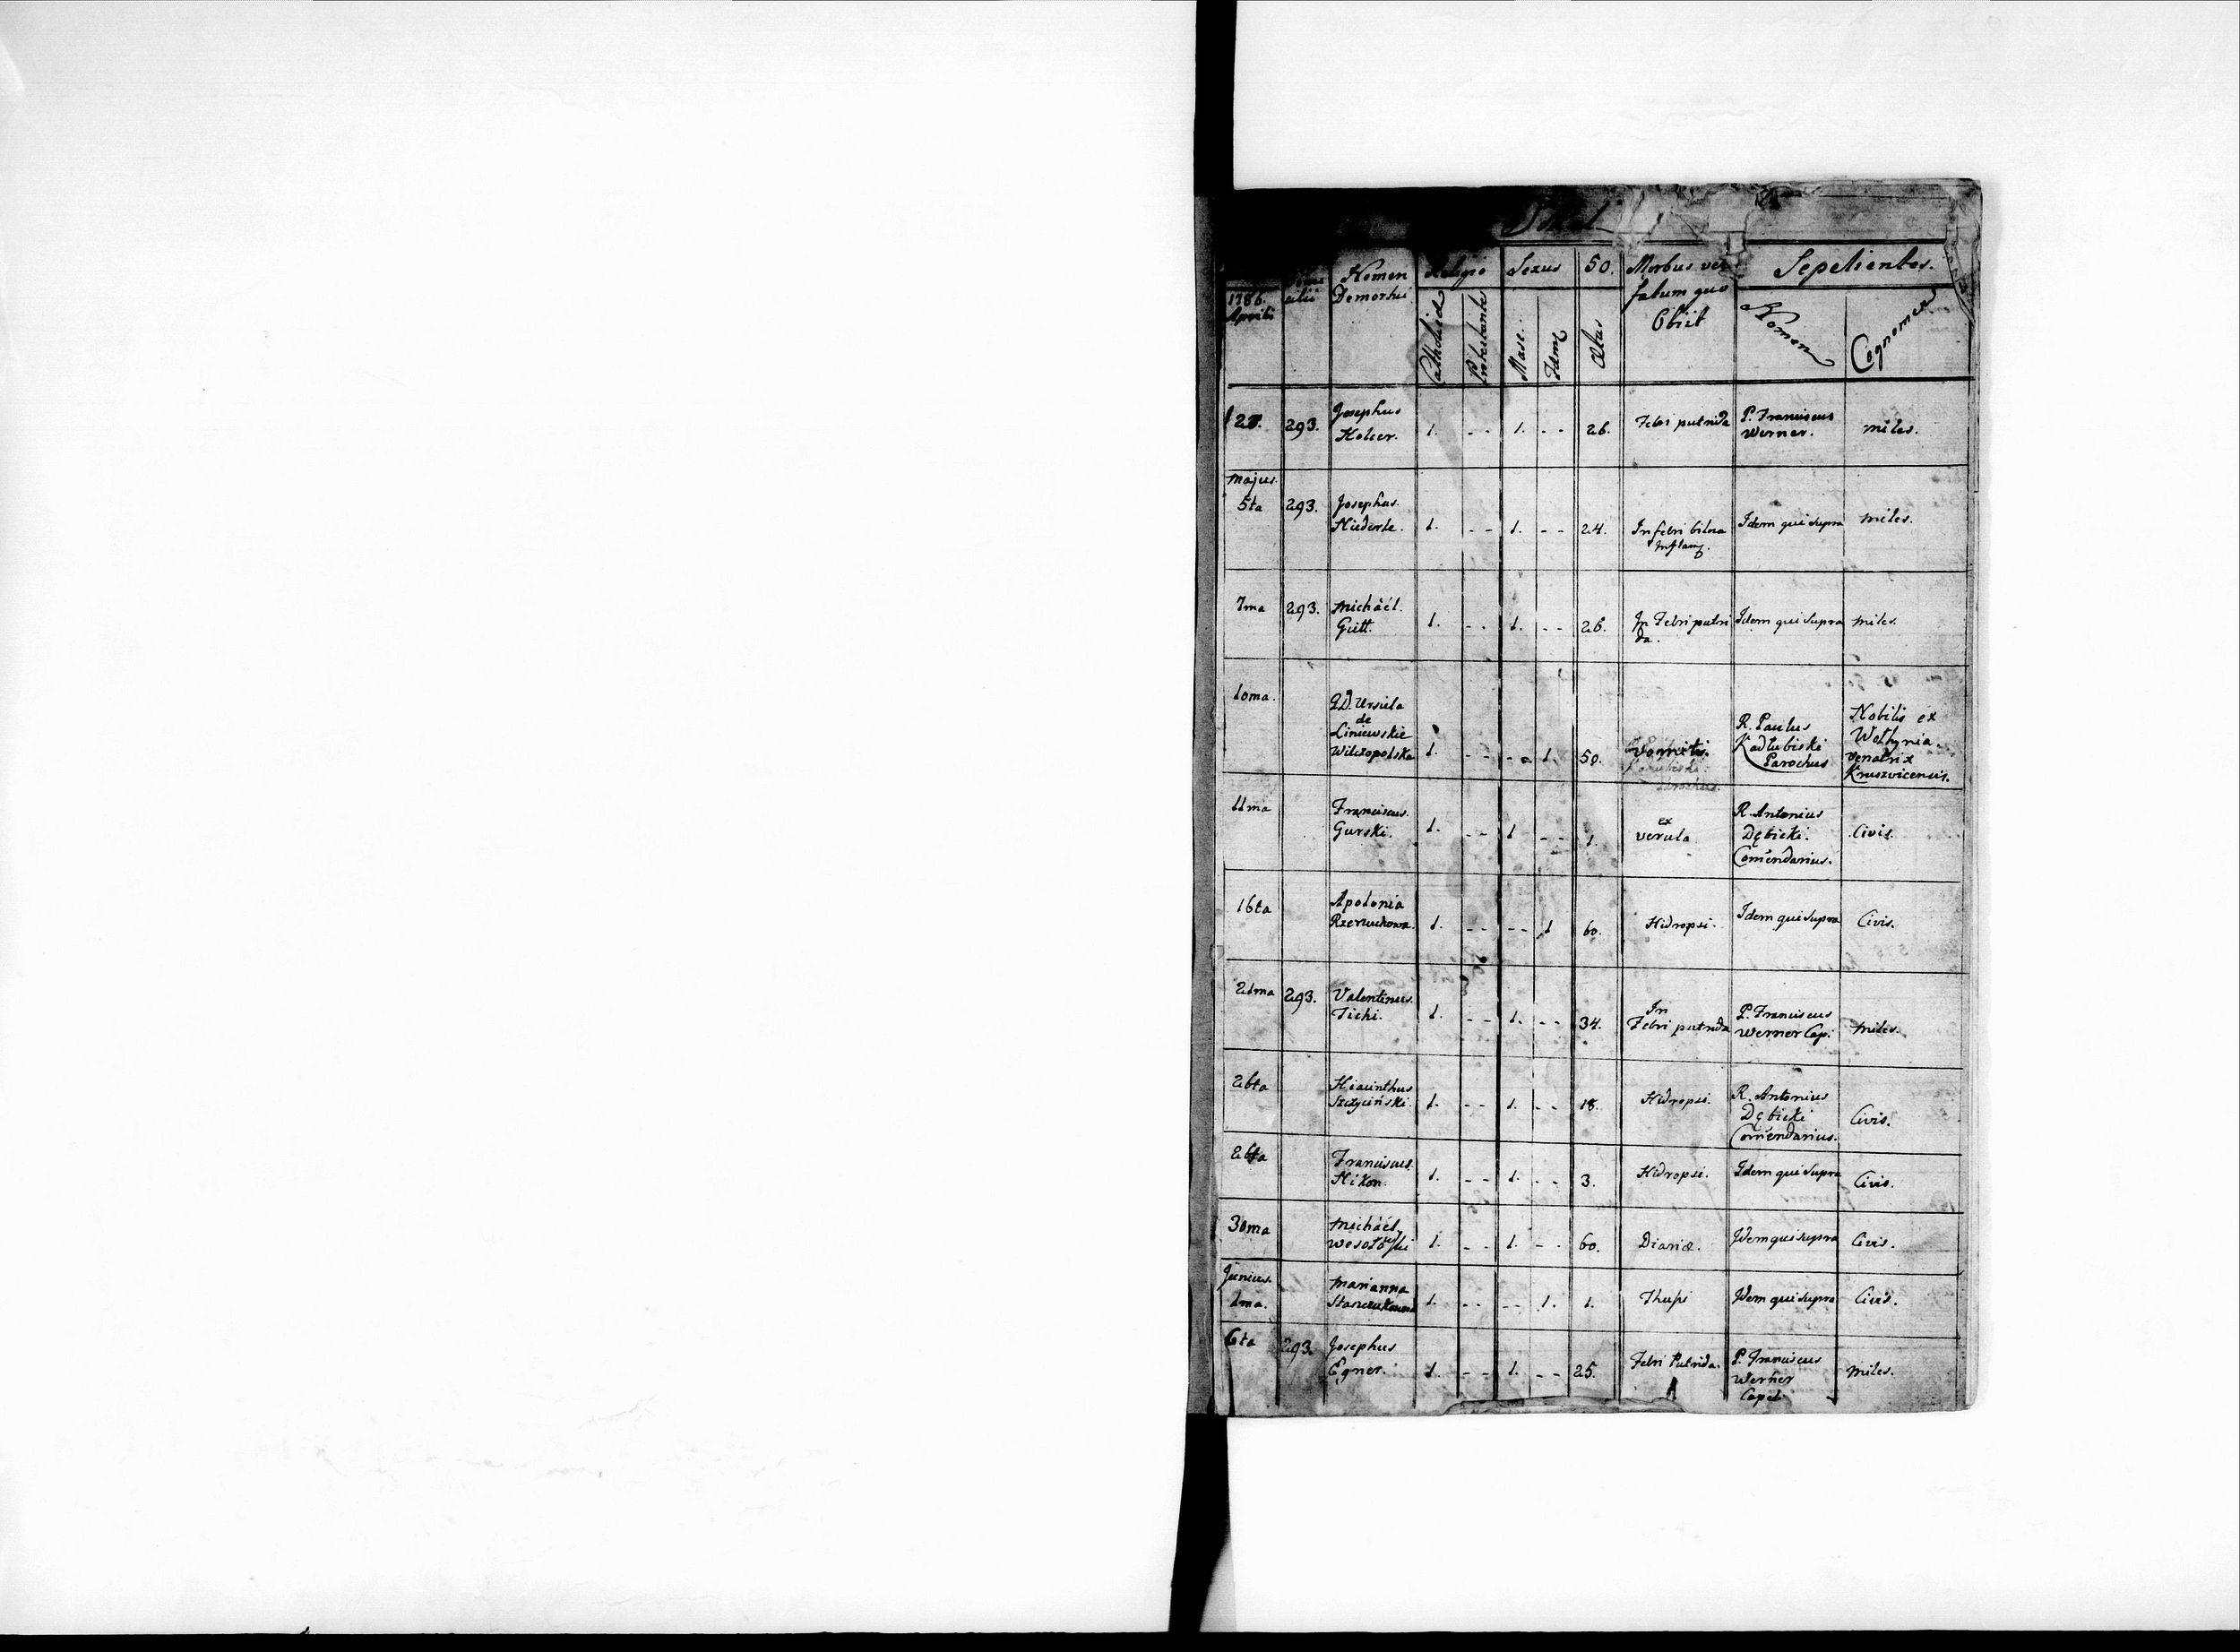 Nomen Religio Sexus 50. Morbus vel Sepelientes.
1786. cilii Demortui fatum quo
Aprilis Obiit
Catholica Masc. Fem Ætas Nomen Cognomen
293. Josephus Febri putrida P. Franciscus
Holier. 1. - - 1. - - 26. Werner. miles.
Majus.
5ta 293. Josephus. Idem qui supra miles.
Niederle. 1. - - 1. - - 24. In febri biliosa
7ma 293. Michäel. In Febri putri Idem qui supra miles.
Gütt. 1. - - 1. - - 26. da.
10ma. Ursula
de
Liniewskie R. Paulus Nobilis ex
Wilczopolska 1. - - - - 1. 50. vomitis. Kadłubiski Wołhynia
Parochus Venatrix
Kruszvicensis.
11ma Franciscus. ex R. Antonius
Gurski. 1. - - 1 - - 1. verula Dębicki. Civis.
Comendarius.
16ta Apolonia Idem qui supra
1. - - - - 1 60. Hidropsi. Civis.
21ma 293. Valentinus. In P. Franciscus
Tichi. 1. - - 1. - - 34. Febri putrida Werner Cap. miles.
26ta Hiacinthus R. Antonius
Szczyciński. 1. - - 1. - - 18. Hidropsi. Dębicki Civis.
Comendarius.
26ta Franciscus Idem qui supra
Nikon. 1. - - 1. - - 3. Hidropsi. Civis.
30ma Michäel Idem qui supra
1. - - 1. - - 60. Diariæ. Civis.
Junius.
1ma. Marianna Idem qui supra
1. - - - - 1. 1. Thusi Civis.
6ta 293. Josephus P. Franciscus
Egner. 1. - - 1. - - 25. Febri Putrida. Werner miles.
Capel